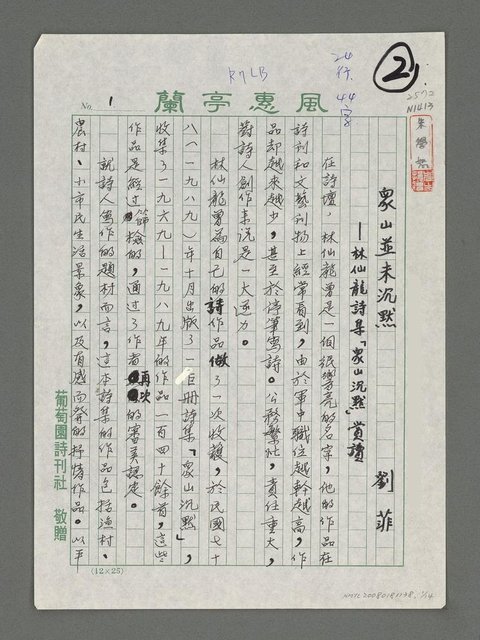 2
24行
44字
R7LB
2572
N1413
No. 1
風惠亭蘭
眾山並未沉默
—林仙龍詩集「眾山沉默」賞讀
劉菲
在詩壇,林仙龍曾是一個很響亮的名字,他的作品在
詩刊和文藝刊物上經常看到,由於軍中職位越幹越高,作
品卻越來越少,甚至於停筆寫詩。公務繁忙,責任重大,
對詩人創作來說是一大逆力。
林仙龍曾為自己的詩作品做了一次收穫,於民國七十
八(一九八九)年十月出版了一巨冊詩集「眾山沉默」,
收集了一九六九—一九八九年的作品一百四十餘首,這些
作品是經過篩檢的,通過了作者再次的審美認定。
就詩人寫作的題材而言,這本詩集的作品包括漁村、
農村、小市民生活景象,以及有感而發的抒情作品。以平
葡萄園詩刊社 敬贈
(12×25)